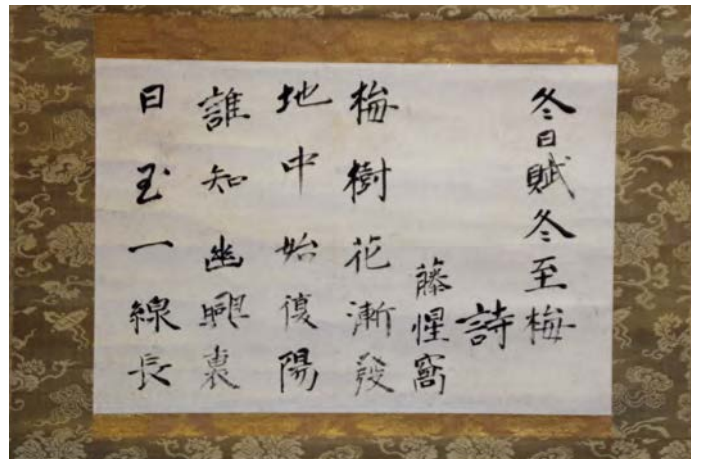 冬日賦冬至梅
詩
藤惺窩
梅樹花漸發
地中始復陽
誰知幽興裏
日至一線長